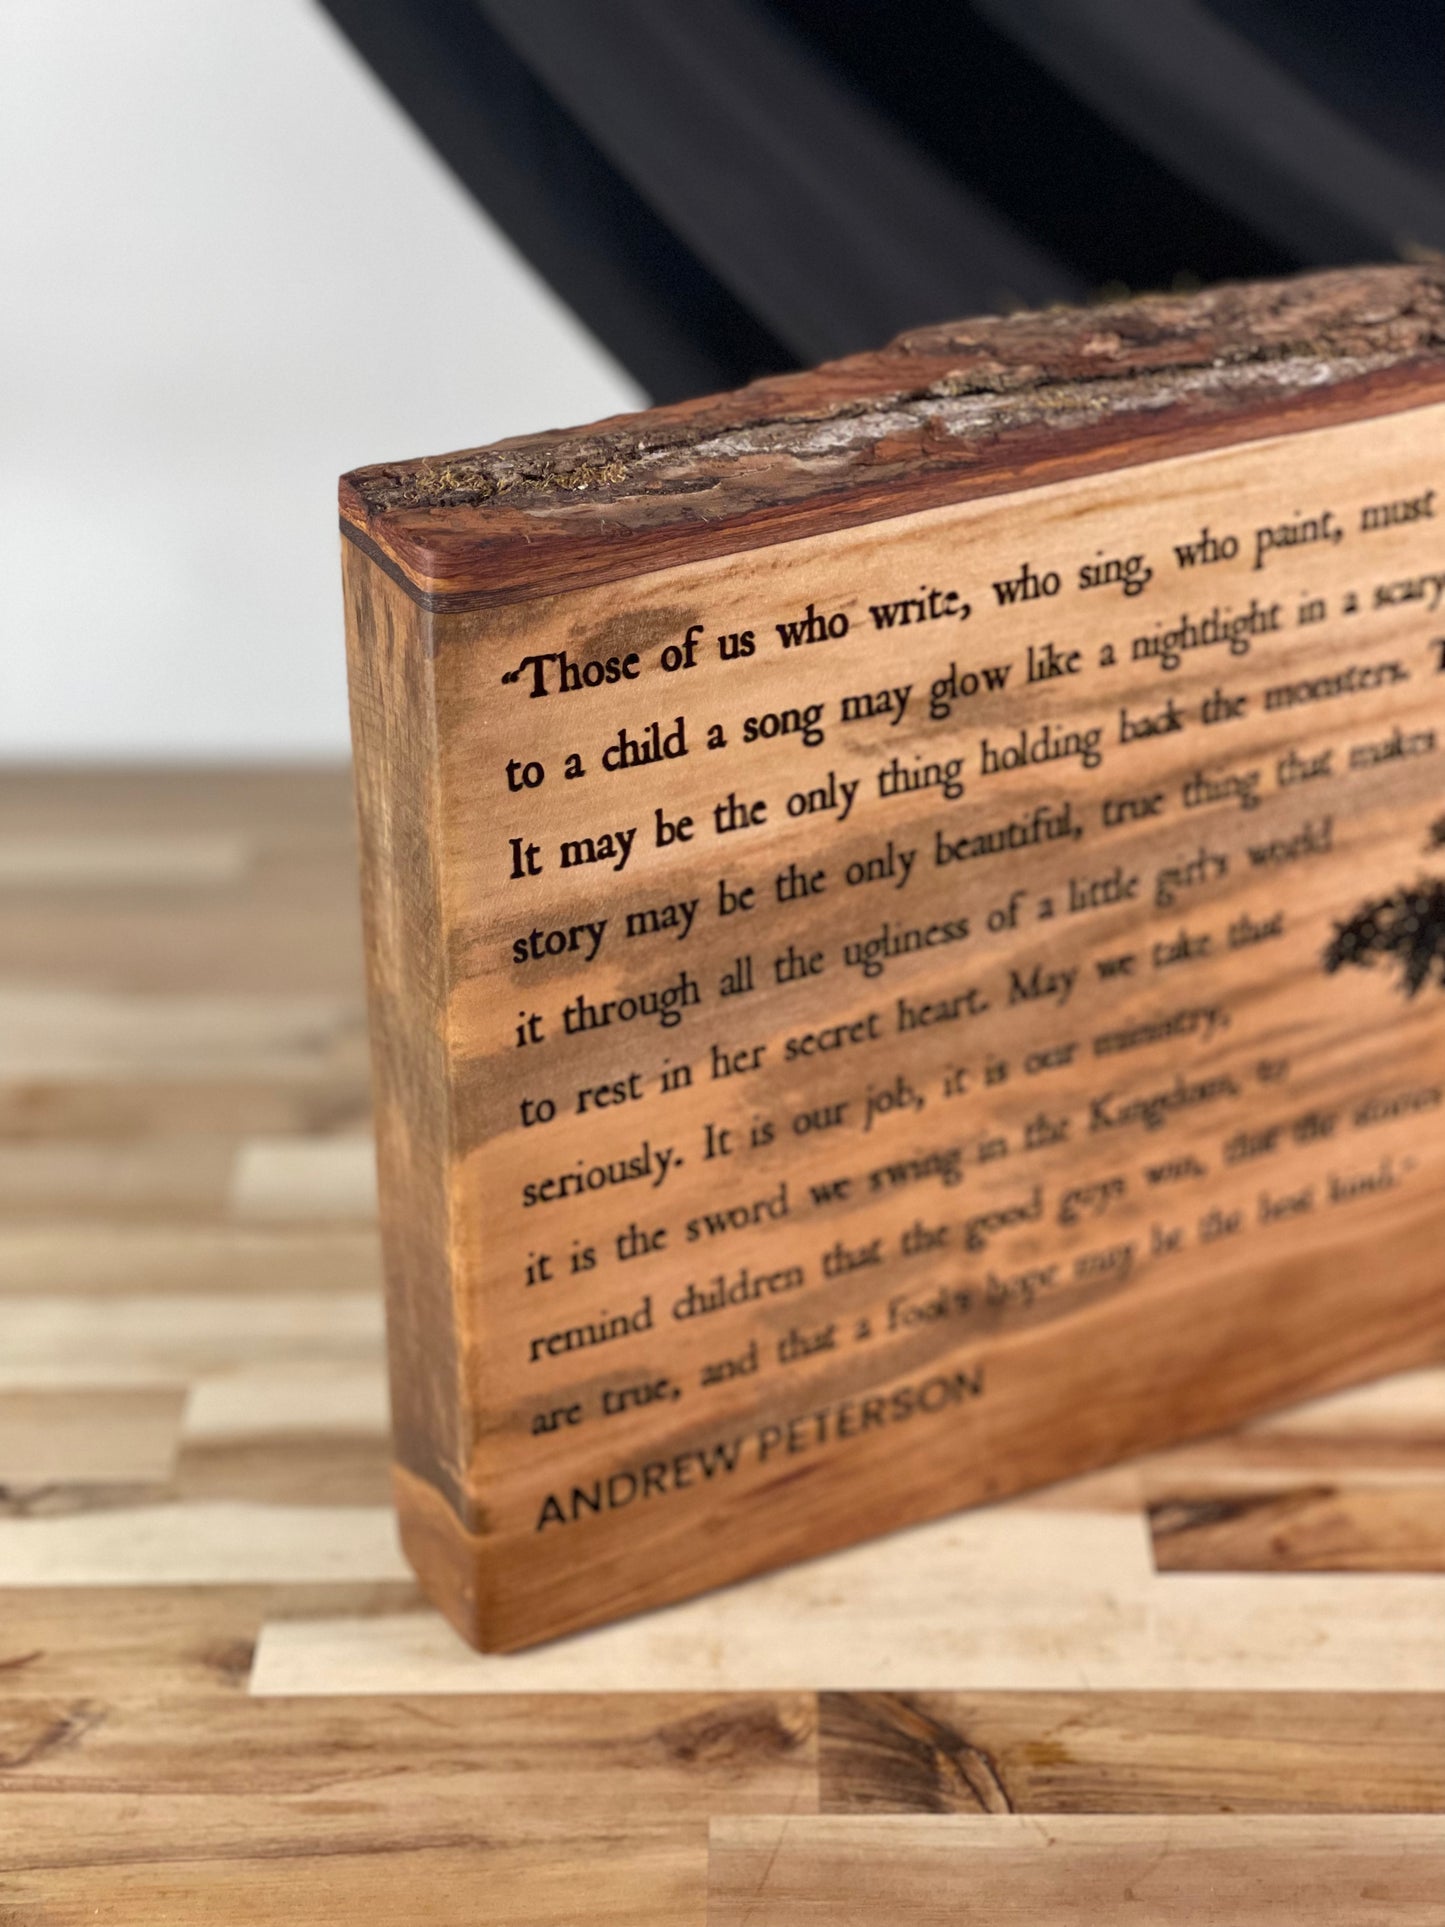 “Those of us who write, who sing, who paint, must
to a child a song may glow like a nightlight in a scary
It may be the only thing holding back the monsters.
story may be the only beautiful, true thing that makes
it through all the ugliness of a little girl's world
to rest in her secret heart. May we take that
seriously. It is our job, it is our ministry,
it is the sword we swing in the Kingdom, to
remind children that the good guys win, that the stories
are true, and that a fool's hope may be the best kind.”
ANDREW PETERSON